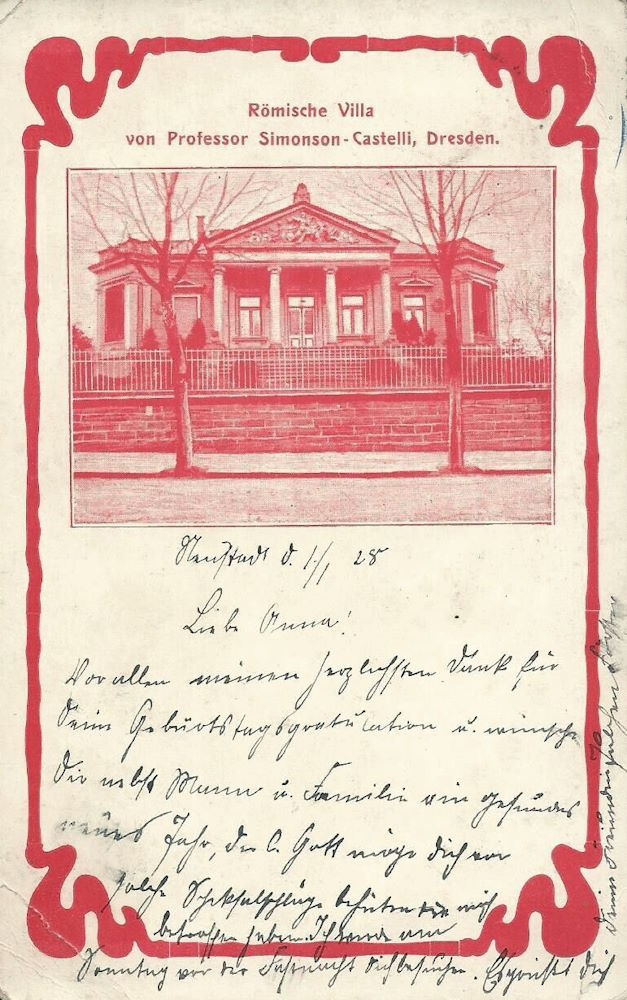 Römische Villa
von Professor Simonson-Castelli, Dresden.
Neustadt d. 1./1. 28
Liebe Anna!
Vor allen meinen herzlichsten Dank für
Deine Geburtstagsgratulation u. wünsche
Dir nebst Mann u. Familie ein gesundes
neues Jahr, der l. Gott möge dich vor
solche Schiksalschläge behüten die mich
betroffen haben. Ich werde am
Sonntag vor der Fastnacht dich besuchen. Es grüßt dich
deine